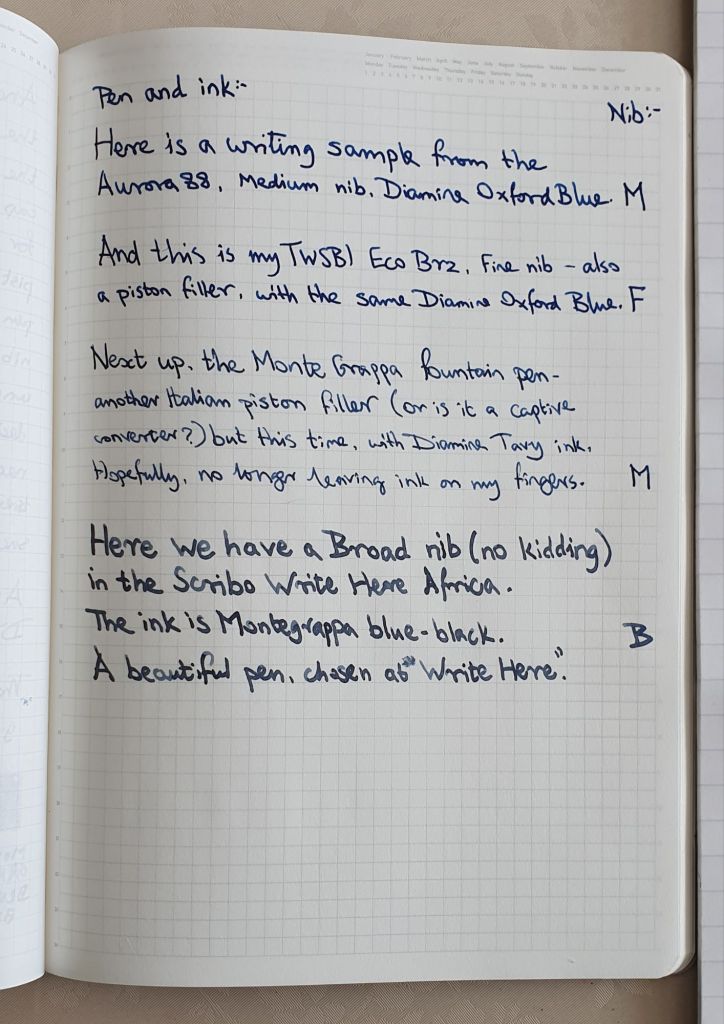 January February March April May June July August September October November December
Monday Tuesday Wednesday Thursday Friday Saturday Sunday
1 2 3 4 5 6 7 8 9 10 11 12 13 14 15 16 17 18 19 20 21 22 23 24 25 26 27 28 29 30 31
Pen and ink:-
Nib:-
Here is a writing sample from the
Aurora 88, Medium nib. Diamine Oxford Blue. M
And this is my TWSBI Eco Brz, Fine nib - also
a piston filler, with the same Diamine Oxford Blue. F
Next up, the Monte Grappa fountain pen-
another Italian piston filler (or is it a captive
converter?) but this time, with Diamine Tavy ink.
Hopefully, no longer leaving ink on my fingers. M
Here we have a Broad nib (no kidding)
in the Scribo Write Here Africa.
The ink is Montegrappa blue-black. B
A beautiful pen, chosen at "Write Here".